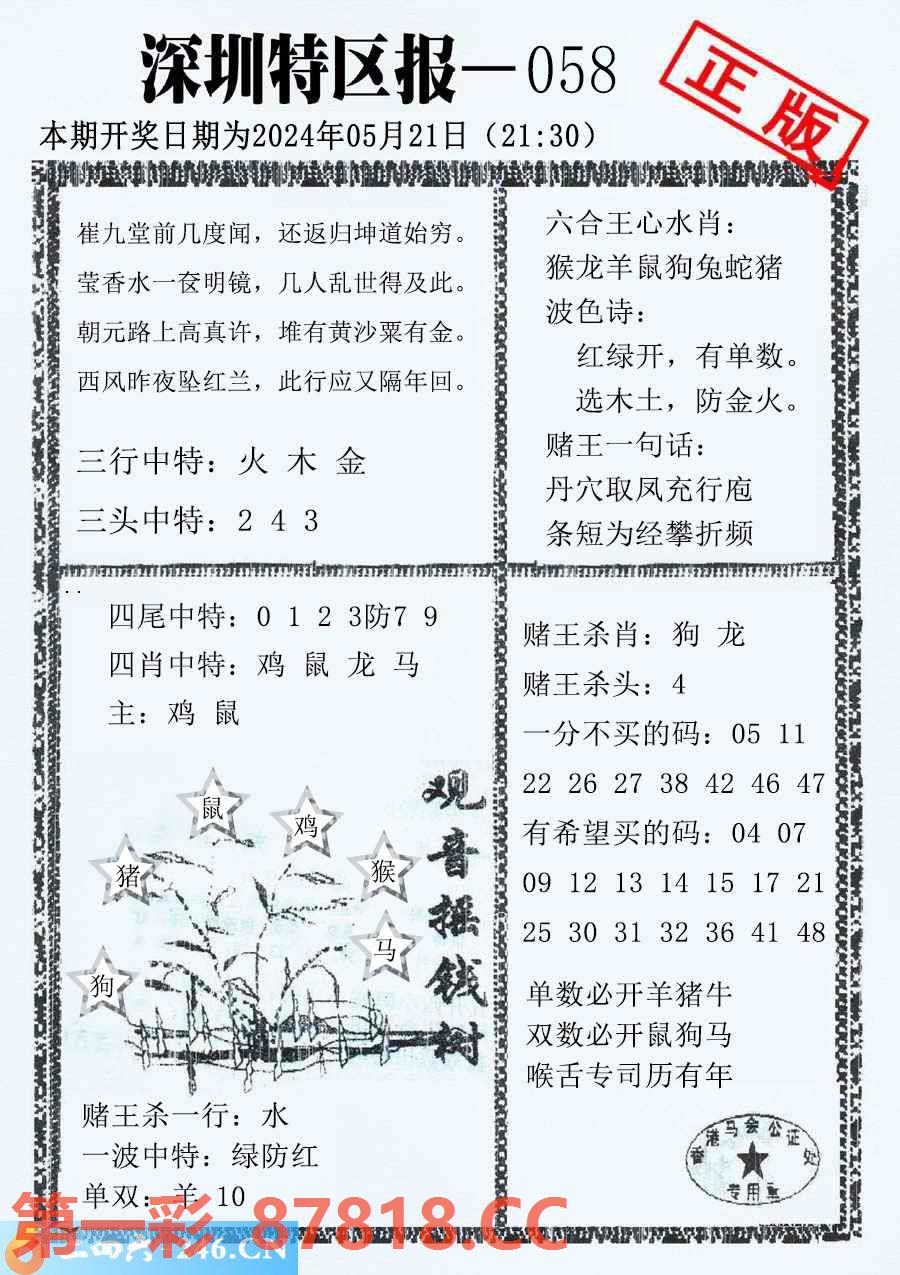 深圳特区报－058
正版
本期开奖日期为2024年05月21日（21:30）
崔九堂前几度闻，还返归坤道始穷。
莹香水一奁明镜，几人乱世得及此。
朝元路上高真许，堆有黄沙粟有金。
西风昨夜坠红兰，此行应又隔年回。
三行中特：火 木 金
三头中特：2 4 3
六合王心水肖：
猴龙羊鼠狗兔蛇猪
波色诗：
红绿开，有单数。
选木土，防金火。
赌王一句话：
丹穴取凤充行庖
条短为经攀折频
四尾中特：0 1 2 3防7 9
四肖中特：鸡 鼠 龙 马
主：鸡 鼠
鼠
鸡
猪
猴
马
狗
观音摇钱树
赌王杀一行：水
一波中特：绿防红
单双：羊 10
赌王杀肖：狗 龙
赌王杀头：4
一分不买的码：05 11
22 26 27 38 42 46 47
有希望买的码：04 07
09 12 13 14 15 17 21
25 30 31 32 36 41 48
单数必开羊猪牛
双数必开鼠狗马
喉舌专司历有年
香港马会公证处
专用章
第一彩 87818.CC
246.CN